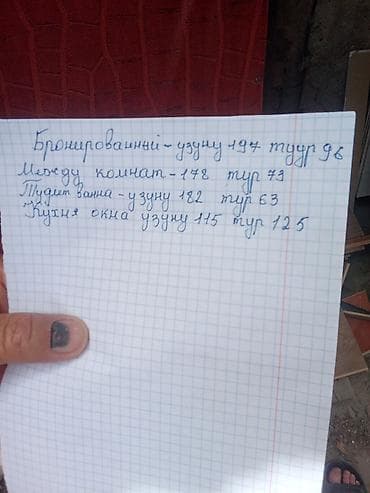 Бронированный - узуну 197 туур 96
Между комнат - 178 тур 73
Тудит ванна - узуну 182 тур 63
Кухня окна узуну 115 тур 125